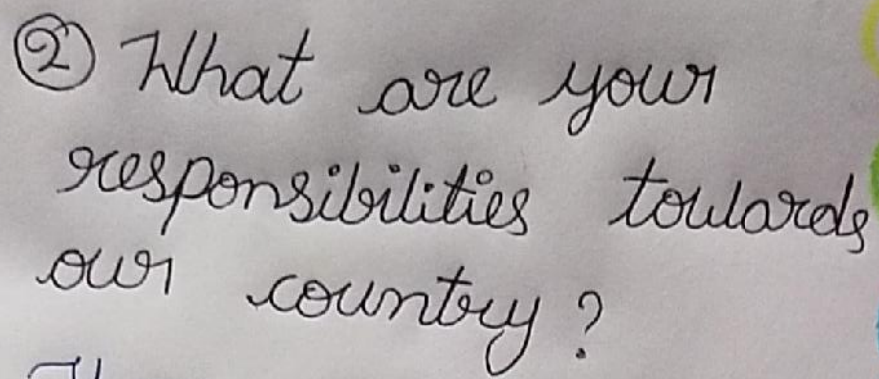 ② What are your
responsibilities towards
our country?